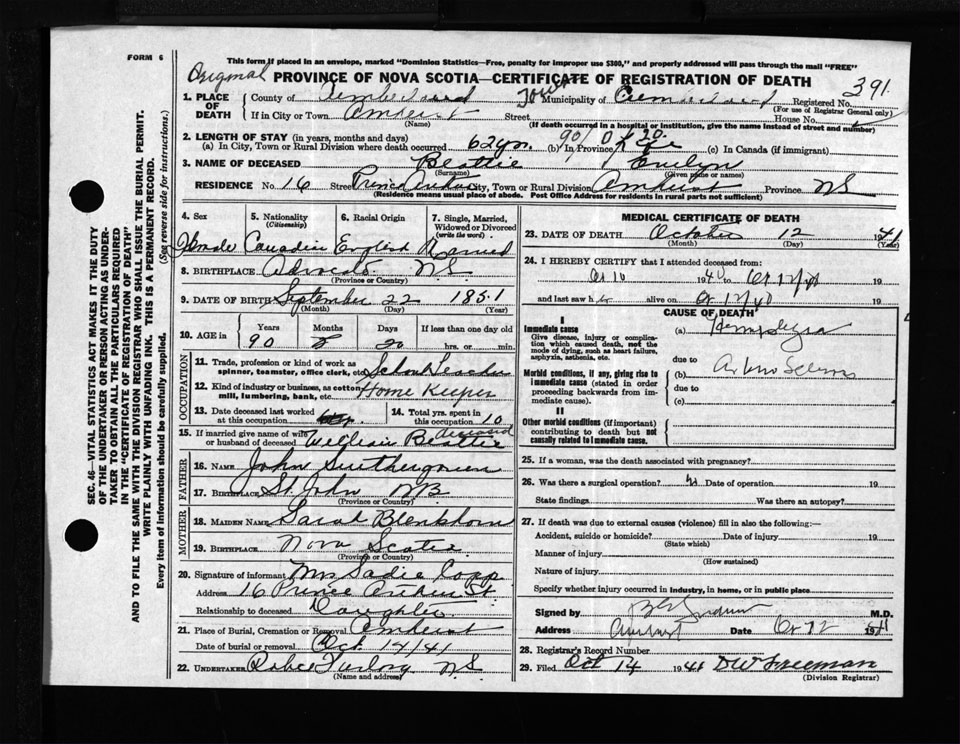 FORM 6
This form if placed in an envelope, marked "Dominion Statistics—Free, penalty for improper use $300," and properly addressed will pass through the mail "FREE"
Original
PROVINCE OF NOVA SCOTIA—CERTIFICATE OF REGISTRATION OF DEATH
391
1. PLACE OF DEATH
County of Cumberland Town Municipality of Cumberland Registered No.
(For use of Registrar General only)
If in City or Town Amherst Street House No.
(Name) (If death occurred in a hospital or institution, give the name instead of street and number)
2. LENGTH OF STAY (in years, months and days)
(a) In City, Town or Rural Division where death occurred 62 yrs. (b) In Province (c) In Canada (if immigrant)
3. NAME OF DECEASED Beattie Evelyn
(Surname) (Given name or names)
RESIDENCE No. 16 Street Prince Arthur City, Town or Rural Division Amherst Province NS
(Residence means usual place of abode. Post Office Address for residents in rural parts not sufficient)
4. Sex 5. Nationality (Citizenship) 6. Racial Origin 7. Single, Married, Widowed or Divorced (write the word)
Female Canadian English Married
8. BIRTHPLACE Advocate N.S.
(Province or Country)
9. DATE OF BIRTH September 22 1851
(Month) (Day) (Year)
10. AGE in Years Months Days If less than one day old
90 20 hrs. or min.
OCCUPATION
11. Trade, profession or kind of work as spinner, teamster, office clerk, etc. School Teacher
12. Kind of industry or business, as cotton mill, lumbering, bank, etc. Home Keeper
13. Date deceased last worked at this occupation 14. Total yrs. spent in this occupation 10
15. If married give name of wife or husband of deceased William Beattie deceased
FATHER
16. NAME John
17. BIRTHPLACE St John NB
(Province or Country)
MOTHER
18. MAIDEN NAME Sarah Blenkhorn
19. BIRTHPLACE Nova Scotia
(Province or Country)
20. Signature of informant Mrs Sadie Copp
Address 16 Prince Arthur St.
Relationship to deceased Daughter
21. Place of Burial, Cremation or Removal Amherst
Date of burial or removal Oct 14/41
22. UNDERTAKER Furlong N.S.
(Name and address)
MEDICAL CERTIFICATE OF DEATH
23. DATE OF DEATH October 12 1941
(Month) (Day) (Year)
24. I HEREBY CERTIFY that I attended deceased from:
Oc 10 1940 to Oc 12/40 19
and last saw her alive on Oc 12/40 19
CAUSE OF DEATH
I
Immediate cause
Give disease, injury or complication which caused death, not the mode of dying, such as heart failure, asphyxia, asthenia, etc.
(a) Hemiplegia
due to
Morbid conditions, if any, giving rise to immediate cause (stated in order proceeding backwards from immediate cause).
(b)
due to
(c)
II
Other morbid conditions (if important) contributing to death but not causally related to immediate cause.
25. If a woman, was the death associated with pregnancy?
26. Was there a surgical operation? Date of operation 19
State findings Was there an autopsy?
27. If death was due to external causes (violence) fill in also the following:
Accident, suicide or homicide? Date of injury 19
(State which)
Manner of injury
(How sustained)
Nature of injury
Specify whether injury occurred in industry, in home, or in public place
Signed by M.D.
Address Amherst Date Oc 12 1941
28. Registrar's Record Number
29. Filed Oct 14 1941 DW Freeman
(Division Registrar)
SEC. 46—VITAL STATISTICS ACT MAKES IT THE DUTY OF THE UNDERTAKER OR PERSON ACTING AS UNDERTAKER TO OBTAIN ALL THE PARTICULARS REQUIRED IN THE "CERTIFICATE OF REGISTRATION OF DEATH" AND TO FILE THE SAME WITH THE DIVISION REGISTRAR WHO SHALL ISSUE THE BURIAL PERMIT.
WRITE PLAINLY WITH UNFADING INK. THIS IS A PERMANENT RECORD.
Every item of information should be carefully supplied. (See reverse side for instructions.)